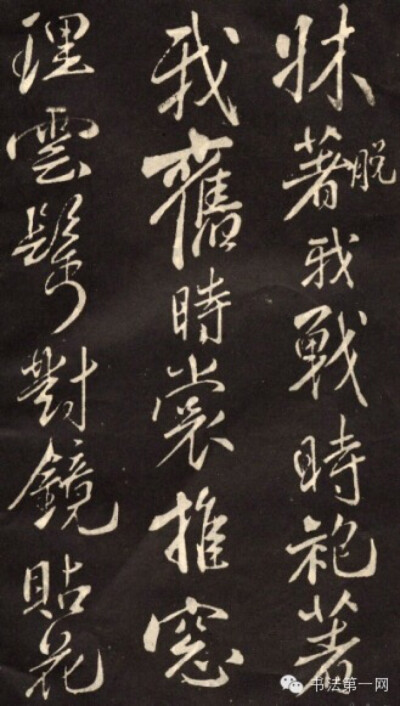 牀著脱我戰時袍著
我舊時裳推窓
理雲鬢對鏡貼花
书法第一网